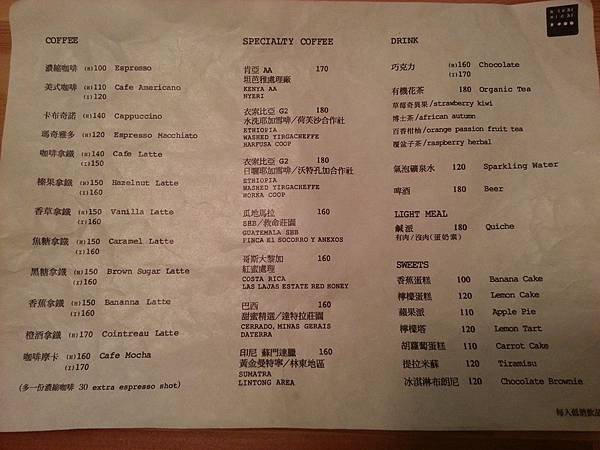 COFFEE
濃縮咖啡 (H)100 Espresso
美式咖啡 (H)110 Cafe Americano
(I)120
卡布奇諾 (H)140 Cappuccino
瑪奇雅多 (H)120 Espresso Macchiato
咖啡拿鐵 (H)140 Cafe Latte
(I)150
榛果拿鐵 (H)150 Hazelnut Latte
(I)160
香草拿鐵 (H)150 Vanilla Latte
(I)160
焦糖拿鐵 (H)150 Caramel Latte
(I)160
黑糖拿鐵 (H)150 Brown Sugar Latte
(I)160
香蕉拿鐵 (H)150 Bananna Latte
(I)160
橙酒拿鐵 (H)170 Cointreau Latte
咖啡摩卡 (H)160 Cafe Mocha
(I)170
(多一份濃縮咖啡 30 extra espresso shot)
SPECIALTY COFFEE
肯亞 AA 170
坦芭雅處理廠
KENYA AA
NYERI
衣索比亞 G2 180
水洗耶加雪啡/荷芙沙合作社
ETHIOPIA
WASHED YIRGACHEFFE
HARFUSA COOP
衣索比亞 G2 180
日曬耶加雪啡/沃特孔加合作社
ETHIOPIA
WASHED YIRGACHEFFE
WORKA COOP
瓜地馬拉 160
SHB/救命莊園
GUATEMALA SHB
FINCA El SOCORRO Y ANEXOS
哥斯大黎加 160
紅蜜處理
COSTA RICA
LAS LAJAS ESTATE RED HONEY
巴西 160
甜蜜精選/達特拉莊園
CERRADO, MINAS GERAIS
DATERRA
印尼 蘇門達臘 160
黃金曼特寧/林東地區
SUMATRA
LINTONG AREA
DRINK
巧克力 (H)160 Chocolate
(I)170
有機花茶 180 Organic Tea
草莓奇異果/strawberry kiwi
博士茶/african autumn
百香柑柚/orange passion fruit tea
覆盆子茶/raspberry herbal
氣泡礦泉水 120 Sparkling Water
啤酒 180 Beer
LIGHT MEAL
鹹派 180 Quiche
有肉/沒肉(蛋奶素)
SWEETS
香蕉蛋糕 100 Banana Cake
檸檬蛋糕 120 Lemon Cake
蘋果派 110 Apple Pie
檸檬塔 120 Lemon Tart
胡蘿蔔蛋糕 110 Carrot Cake
提拉米蘇 120 Tiramisu
冰淇淋布朗尼 120 Chocolate Brownie
每人低消飲品